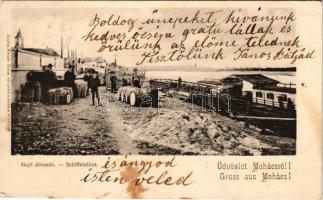 Boldog ünnepeket kivánunk
kedves őcsém gratulállak és
örülünk az előme telednek
Tisztölünk János Bátyád
Hajó állomás. — Schiffstation.
Üdvözlet Mohácsról!
Gruss aus Mohács!
és ángyod
isten veled